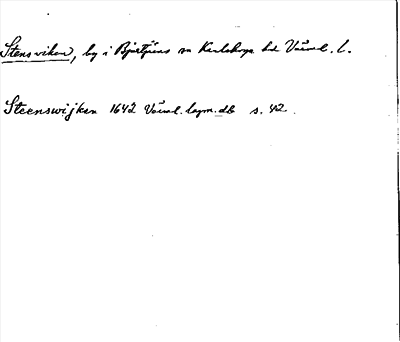 Stensviken, by i Bjurtjärns sn Karlskoga hd Värml. l.
Steenswijken 1642 Värml. lagm.db s. 42.